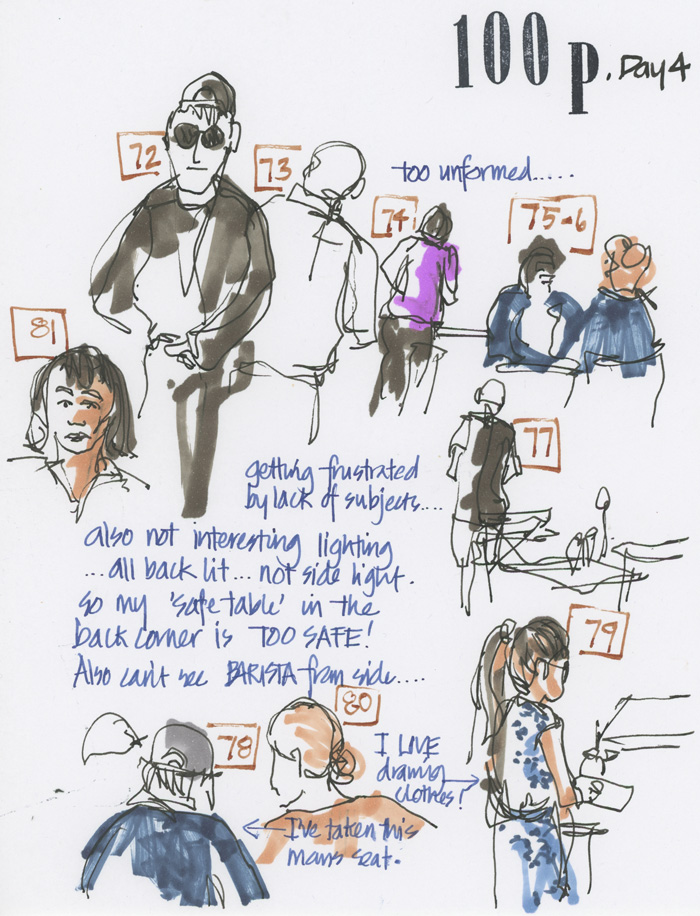 100 p. Day 4
72
73
too unformed.....
74
75-6
81
77
getting frustrated
by lack of subjects....
also not interesting lighting
...all back lit... not side light.
so my 'safe table' in the
back corner is TOO SAFE!
Also can't see BARISTA from side....
79
78
80
I LOVE
drawing
clothes!
I've taken this
mans seat.